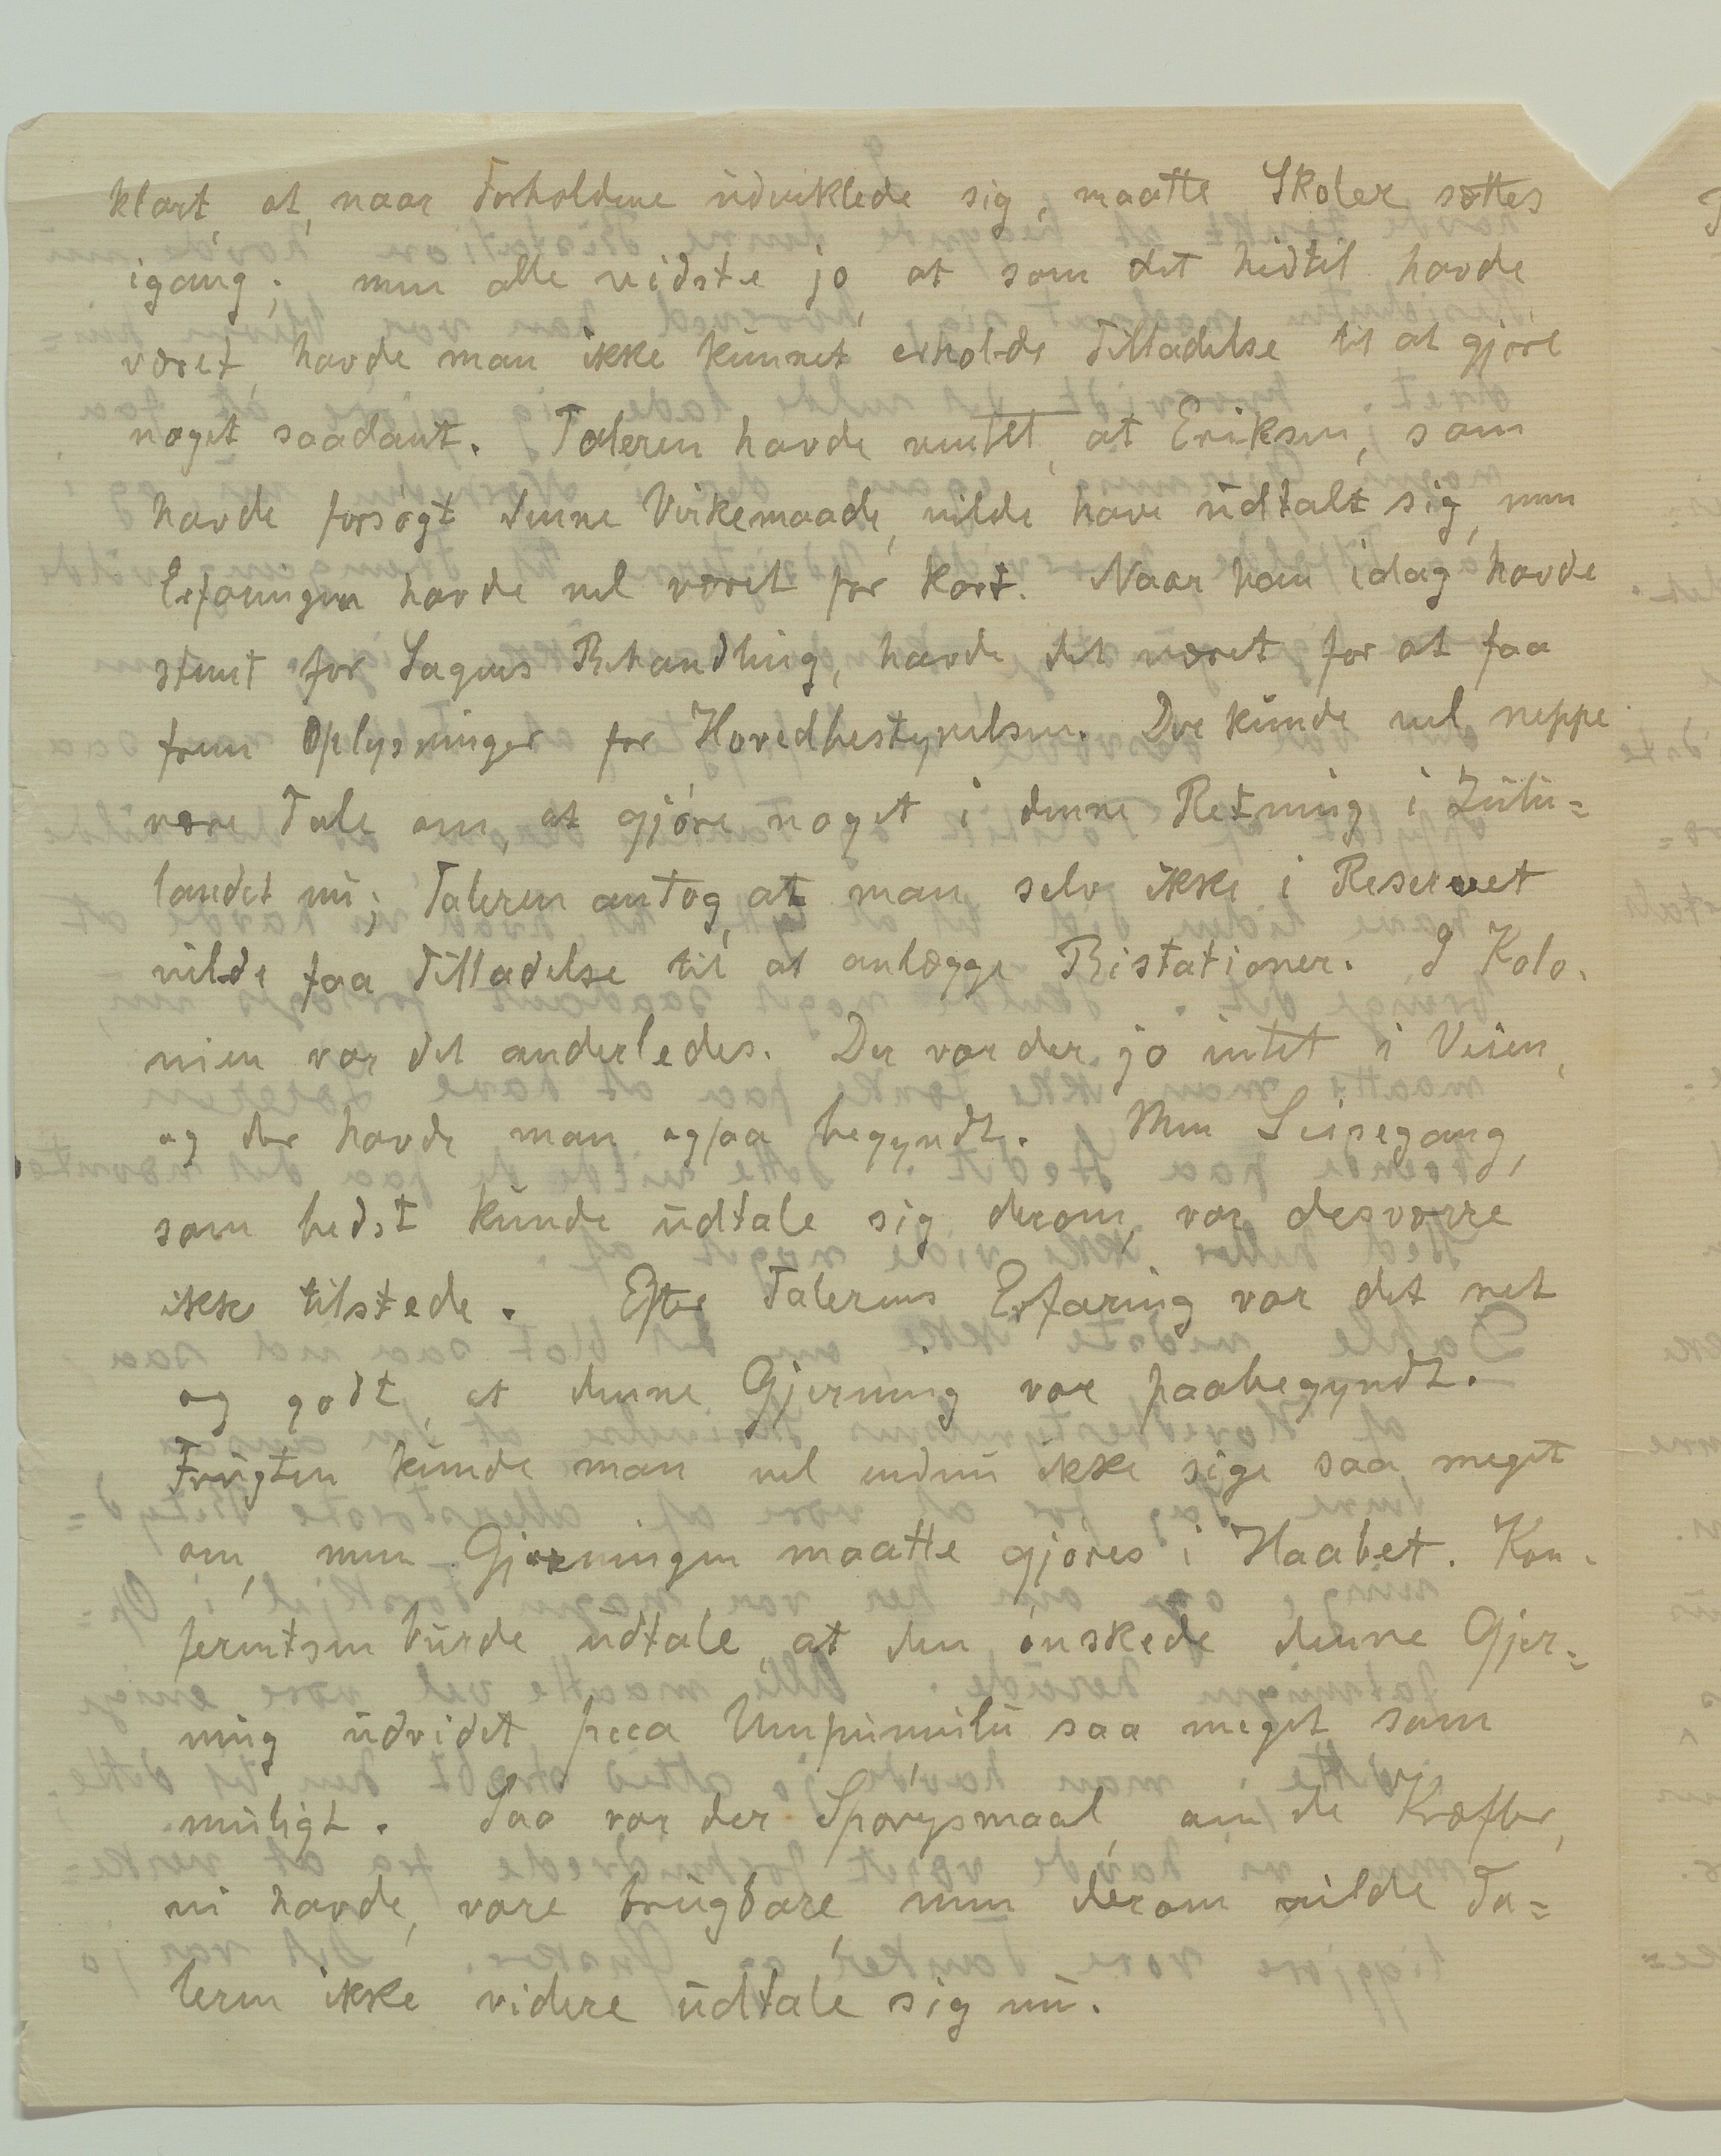 klart, at, naar Forholdene udviklede sig, maatte Skoler sættes
igang; men alle vidste jo, at som det hidtil havde
været, havde man ikke kunnet erholde Tilladelse til at gjøre
noget saadant. Taleren havde ventet, at Eriksen, som
havde forsøgt denne Virkemaade, vilde have udtalt sig, men
Erfaringen havde vel været for kort. Naar han idag havde
stemt for Sagens Behandling, havde det været for at faa
frem Oplysninger for Hovedbestyrelsen. Der kunde vel neppe
være Tale om, at gjøre noget i denne Retning i Zulu=
landet nu; Taleren antog, at man selv ikke i Reservet
vilde faa Tilladelse til at anlægge Bistationer. I Kolo-
nien var det anderledes. Der var der jo intet i Veien,
og der havde man ogsaa begyndt. Men Leisegang,
som bedst kunde udtale sig derom, var desværre
ikke tilstede. Efter Talerens Erfaring var det ret
og godt, at denne Gjerning var paabegyndt.
Frugten kunde man vel endnu ikke sige saa meget
om, men Gjerningen maatte gjøres i Haabet. Kon-
ferentsen burde udtale, at den ønskede denne Gjer=
ning udvidet paa Umpumulu saa meget som
muligt. Saa var der Spørgsmaal, om de Kræfter,
vi havde, vare brugbare, men derom vilde Ta=
leren ikke videre udtale sig nu.